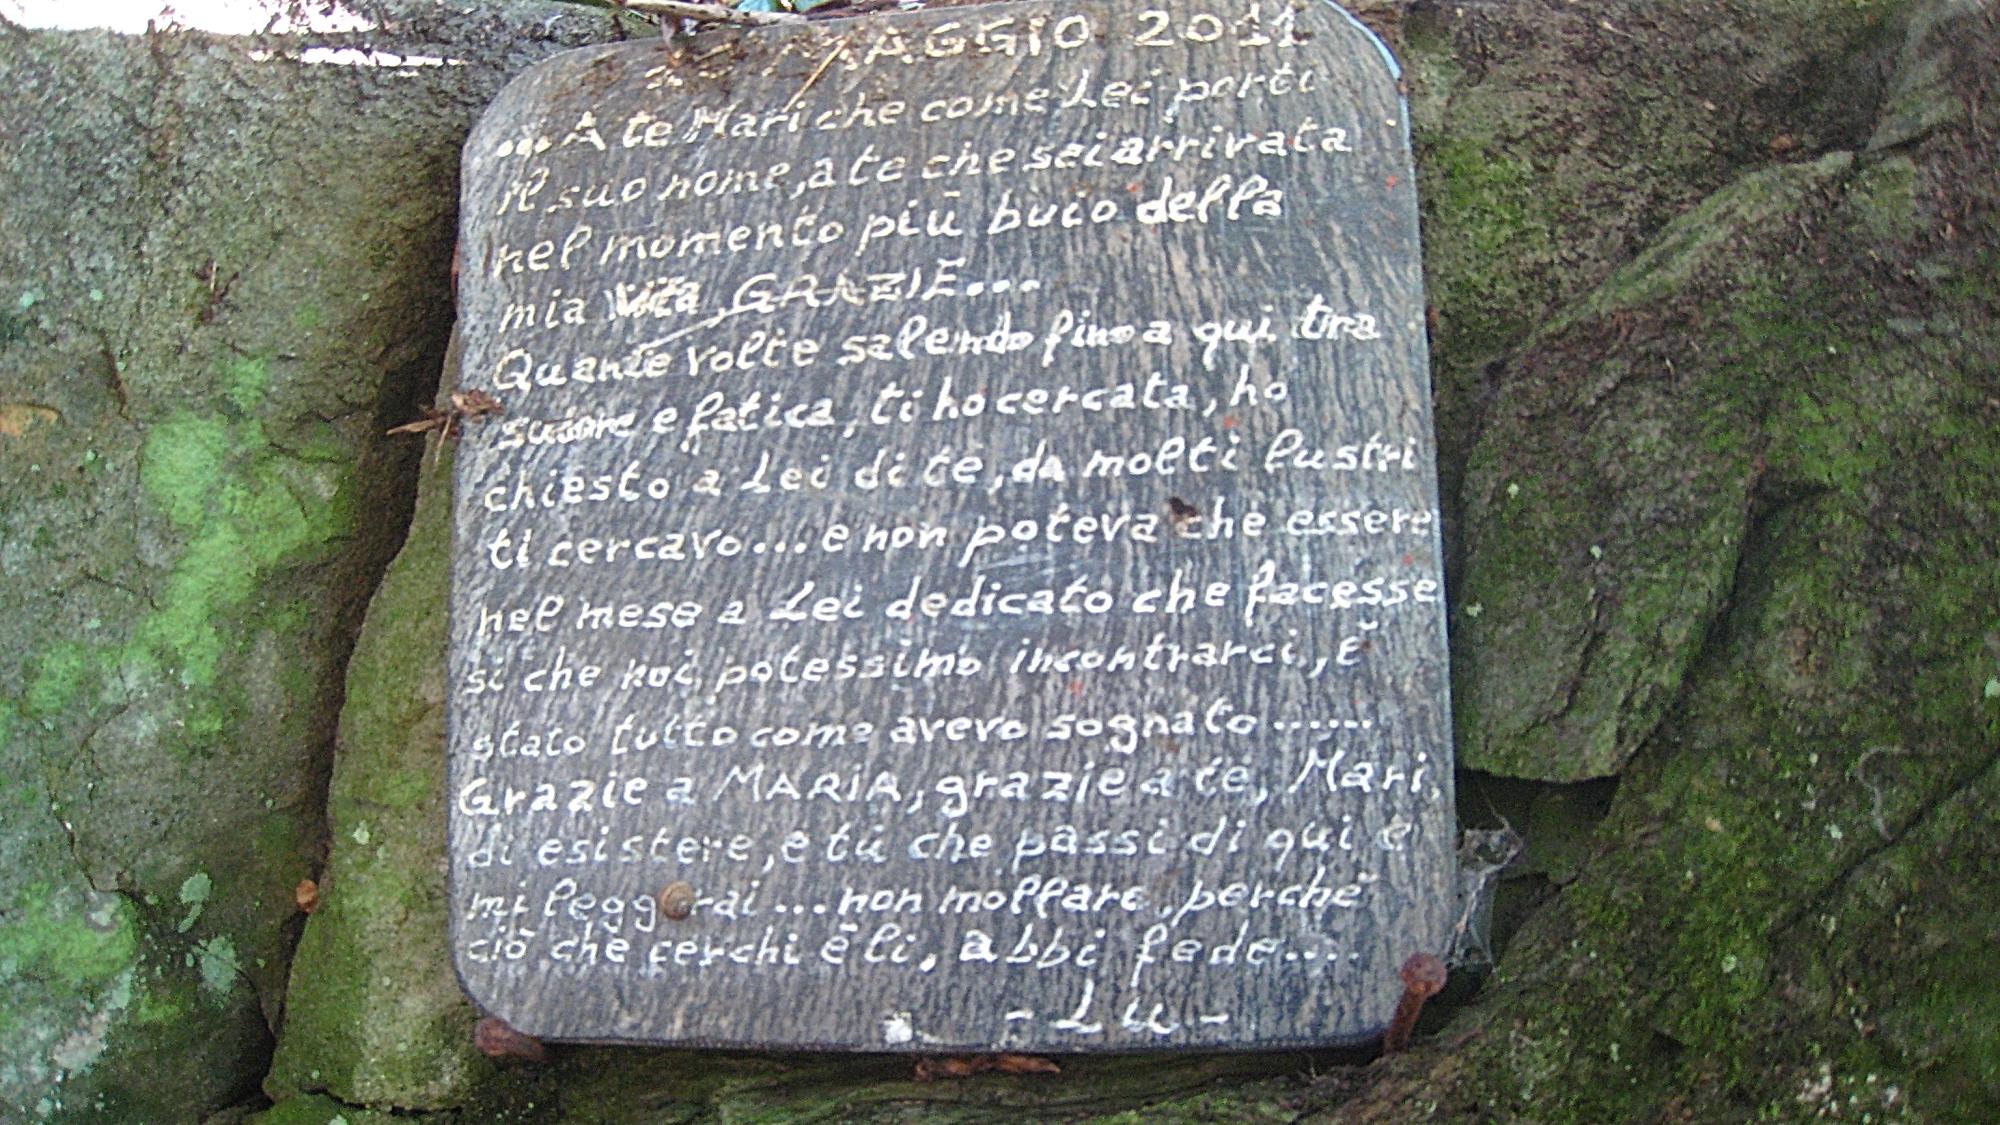 MAGGIO 2011
... A te Mari che come Lei porti
il suo nome, a te che sei arrivata
nel momento più buio della
mia vita, GRAZIE...
Quante volte salendo fino a qui tra
sudore e fatica, ti ho cercata, ho
chiesto a Lei di te, da molti lustri
ti cercavo... e non poteva che essere
nel mese a Lei dedicato che facesse
si che noi potessimo incontrarci, È
stato tutto come avevo sognato ......
Grazie a MARiA, grazie a te, Mari,
di esistere, e tu che passi di qui e
mi leggerai... non mollare, perché
ciò che cerchi è li, abbi fede....
- Lu -